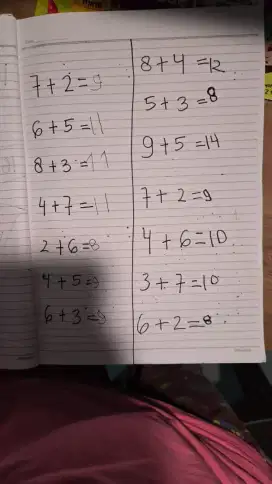 7+2=9
6+5=11
8+3=11
4+7=11
2+6=8
4+5=9
6+3=9
8+4=12
5+3=8
9+5=14
7+2=9
4+6=10
3+7=10
6+2=8